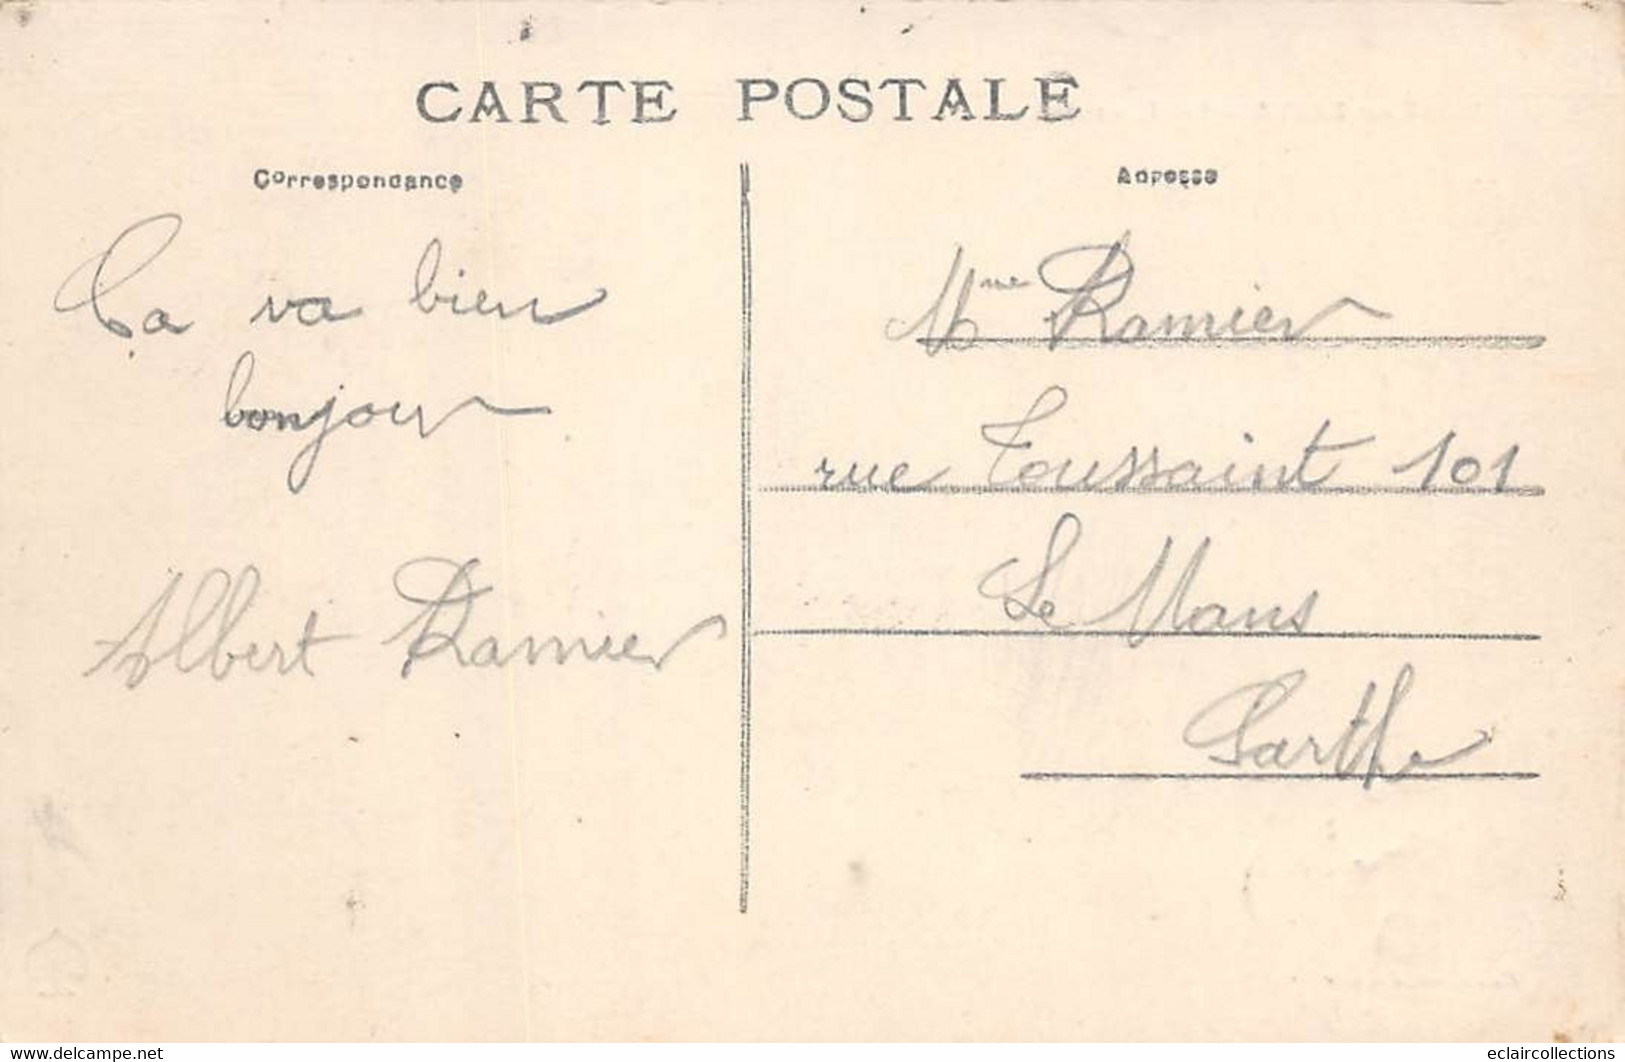 CARTE POSTALE
Correspondance
Adresse
Ça va bien
bonjour
Albert Ramier
Mme Ramier
rue Toussaint 101
Le Mans
Sarthe
www.delcampe.net
eclaircollections